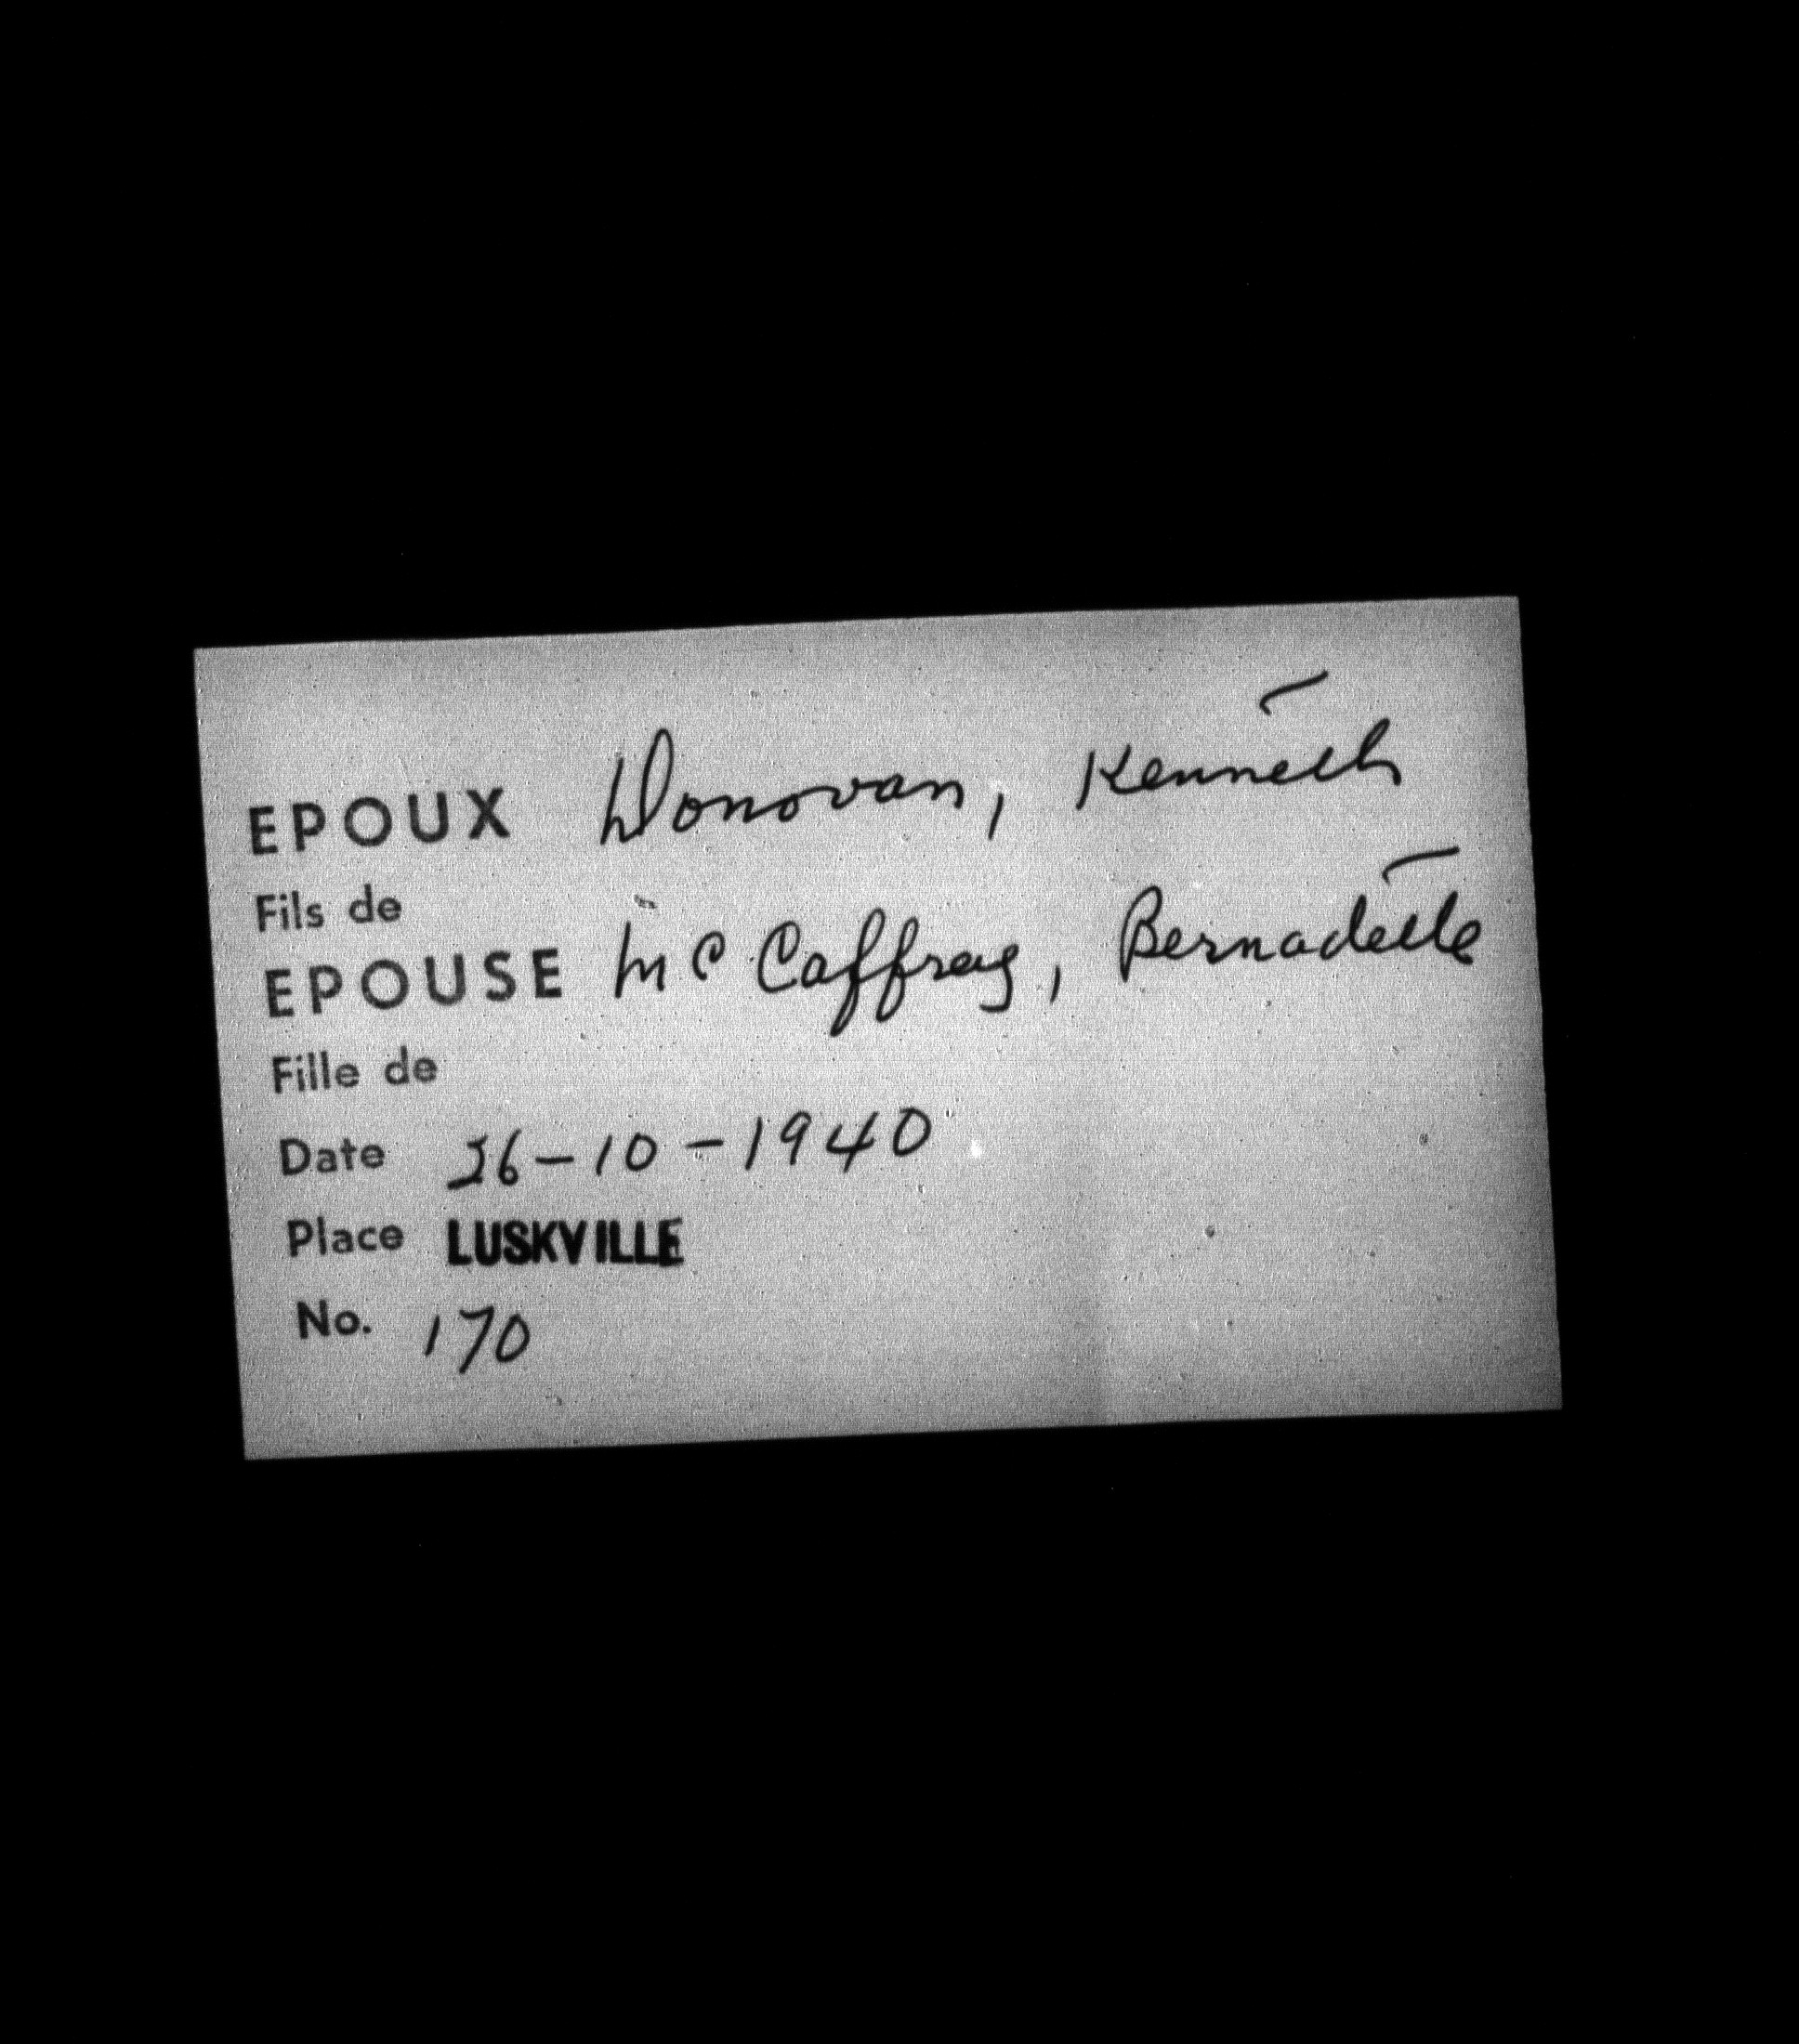 EPOUX Donovan, Kenneth
Fils de
EPOUSE McCaffrey, Bernadette
Fille de
Date 26-10-1940
Place LUSKVILLE
No. 170